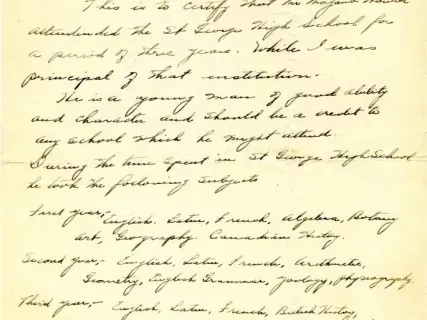 This is to certify that Mr
attendended the St George High School for
a period of three years. While I was
principal of that institution.
He is a young man of good ability
and character and should be a credit to
any school which he might attend.
During the time spent in St George High School
he took the following subjects
First year,- English. Latin, French, Algebra, Botany
Art, Geography. Canadian History.
Second year,- English, Latin, French, Arithmetic,
Geometry, English Grammar, Zoology, Physiography.
Third year,- English, Latin, French, British History,